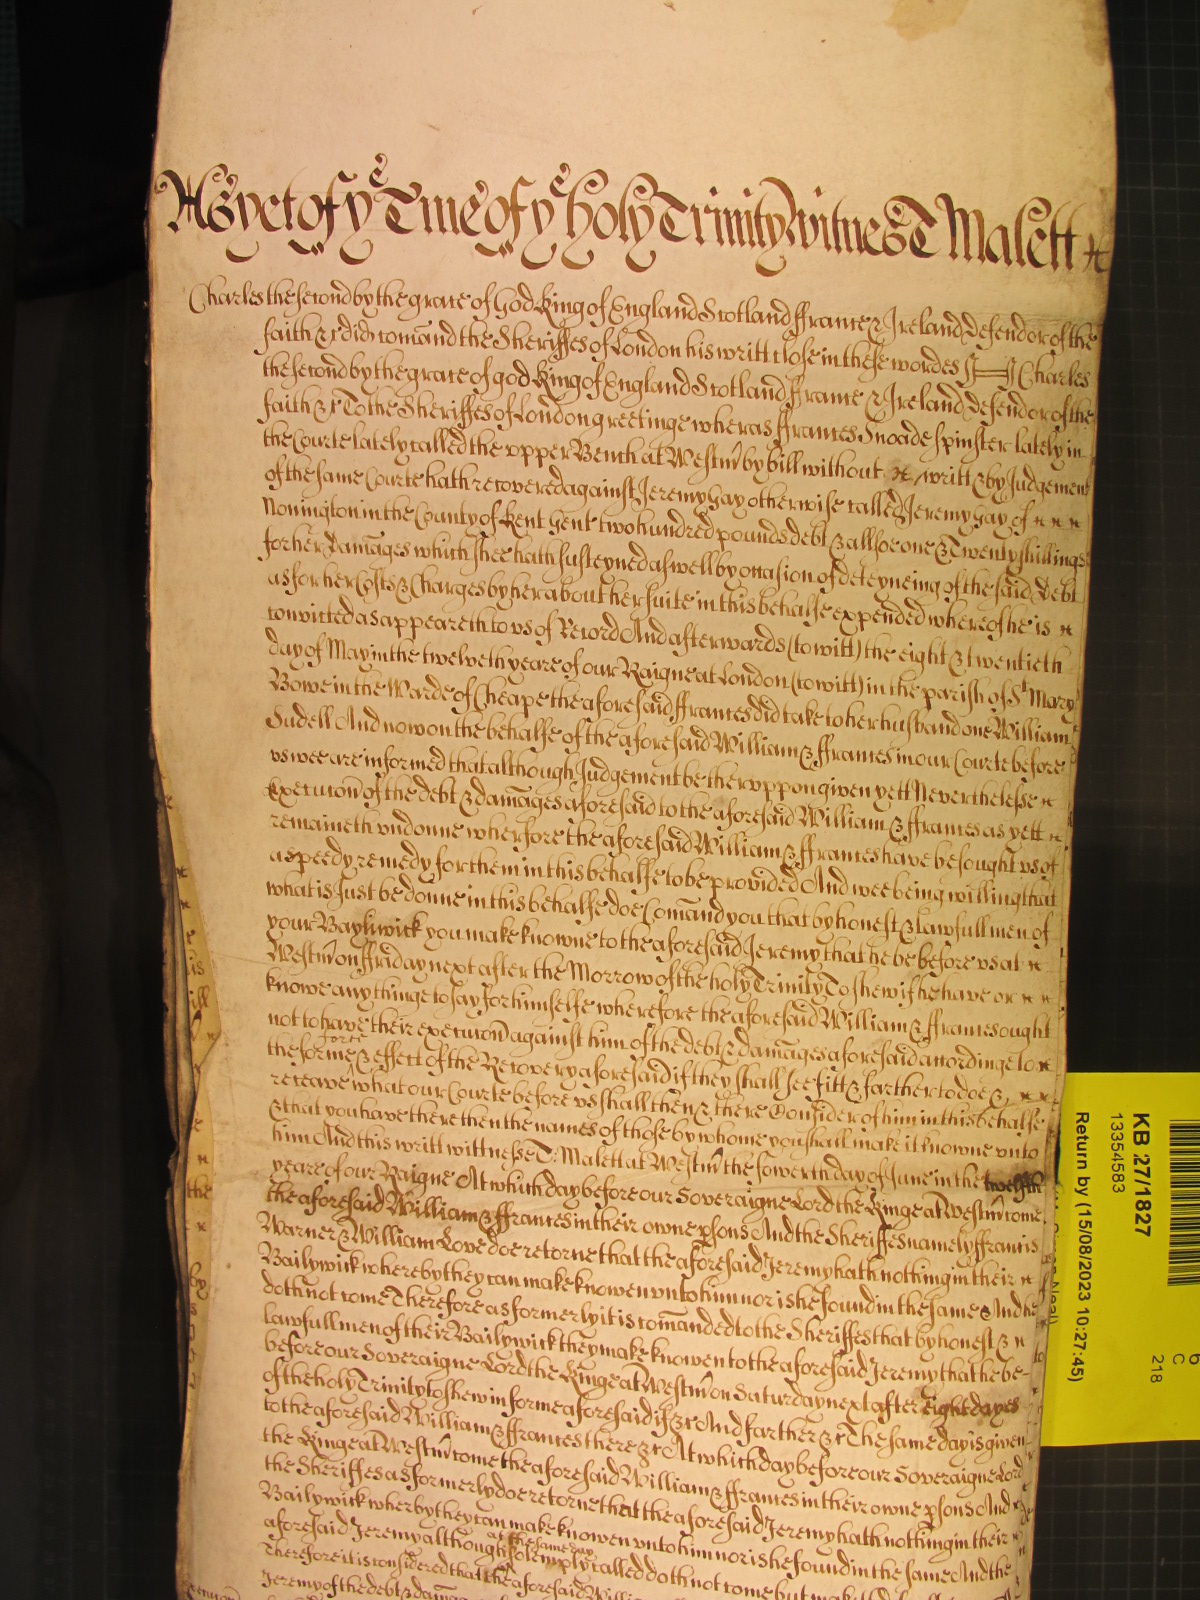 As yet of yͤ Tme of yͤ holy Trinity witnes T Malett
Charles the second by the grace of God King of England Scotland ffrance & Ireland Defendor of the
faith &c did comand the Sheriffes of London his writt close in these wordes ss Charles
the second by the grace of god King of England Scotland ffrance & Ireland Defendor of the
faith &c To the Sheriffes of London greetinge wheras ffrances Snoade spinster lately in
the Courte lately called the vpper Bench at Westm̃ by bill without writt & by Judgement
of the same Courte hath recovered against Jeremy Gay otherwise called Jeremy Gay of
Nonington in the County of Kent Gent two hundred pounds debt & allsoe one & Twenty shillings
for her Damãges which shee hath susteyned aswell by occasion of deteyneing of the said Debt
as for her Costs & Charges by her about her suite in this behalfe expended whereof he is
convicted as appeareth to vs of Record And afterwards (to witt) the eight & twentieth
day of May in the twelveth yeare of our Raigne at London (to witt) in the parish of St Mary
Bowe in the Warde of Cheape the aforesaid ffrances did take to her husband one William
Sudell And now on the behalfe of the aforesaid William & ffrances in our Courte before
vs wee are informed that although Judgement be thervppon given yett Neverthelesse
Execucõn of the debt & damãges aforesaid to the aforesaid William & ffrances as yett
remaineth vndonne wherfore the aforesaid William & ffrances have besought vs of
a speedy remedy for them in this behalfe to be provided And wee being willing that
what is Just be donne in this behalfe doe Comãnd you that by honest & lawfull men of
your Bayliwick you make knowne to the aforesaid Jeremy that he be before vs at
Westm̃ on ffriday next after the Morrow of the holy Trinity To shew if he have or
knowe any thinge to say for himselfe wherefore the aforesaid William & ffrances ought
not to have their execucõn against him of the debt & damãges aforesaid accordinge to
the forme force & effect of the Recovery aforesaid if they shall see fitt & farther to doe &
receave what our Courte before vs shall then & there Consider of him in this behalfe
& that you have there then the names of those by whome you shall make it knowne vnto
him And this writt wittnesse T: Malett at Westm̃ the fowerth day of June in the twelfth
yeare of our Raigne At which day before our Soveraigne Lord the Kinge at Westm̃ come
the aforesaid William & ffrances in their owne psons And the Sheriffes namely ffrancis
Warner & William Love doe retorne that the aforesaid Jeremy hath nothing in their
Bailywick whereby they can make knowen vnto him nor is he found in the same And he
doth not come Therefore as formerly it is comãnded to the Sheriffes that by honest &
lawfull men of their Bailywick they make knowen to the aforesaid Jeremy that he be
before our Soveraigne Lord the Kinge at Westm̃ on Saturday next after eight dayes
of the holy Trinity to shew in forme aforesaid if &c And farther &c The same day is given
to the aforesaid William & ffrances there &c At which day before our Soveraigne Lord
the Kinge at Westm̃ come the aforesaid William & ffrances in their owne psons And
the Sheriffes as formerly doe retorne that the aforesaid Jeremy hath nothing in their
Bailywick wherby they can make knowen vnto him nor is he found in the same And the
aforesaid Jeremy although at the same day solemply called doth not come but
Therefore it is considered that the aforesaid
Jeremy of the debt &
KB 27/1827
13354583
Return by (15/08/2023 10:27:45)
C
218